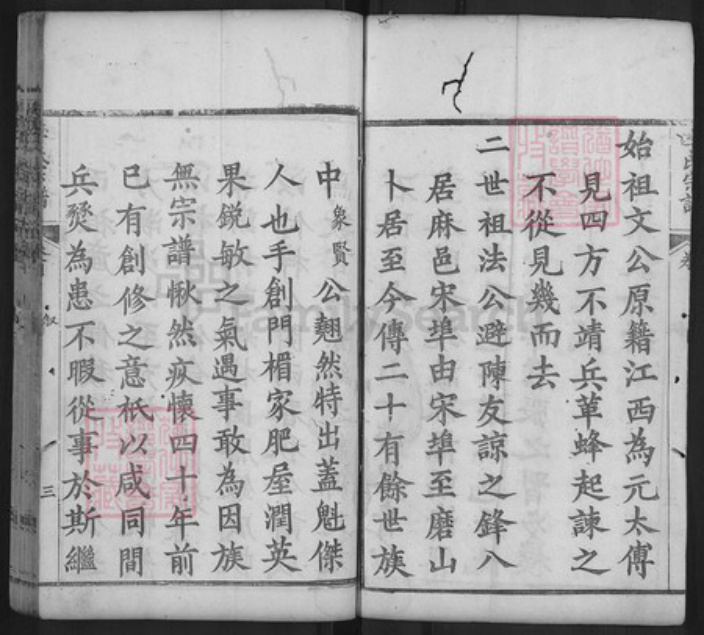 始祖文公原籍江西為元太傅
見四方不靖兵革蜂起諫之
不從見幾而去
二世祖法公避陳友諒之鋒八
居麻邑宋埠由宋埠至磨山
卜居至今傳二十有餘世族
中象賢公翹然特出蓋魁傑
人也手創門楣家肥屋潤英
果銳敏之氣遇事敢為因族
無宗譜愀然疚懷四十年前
已有創修之意祇以咸同間
兵燹為患不暇從事於斯繼
氏宗譜
三
FamilySearch